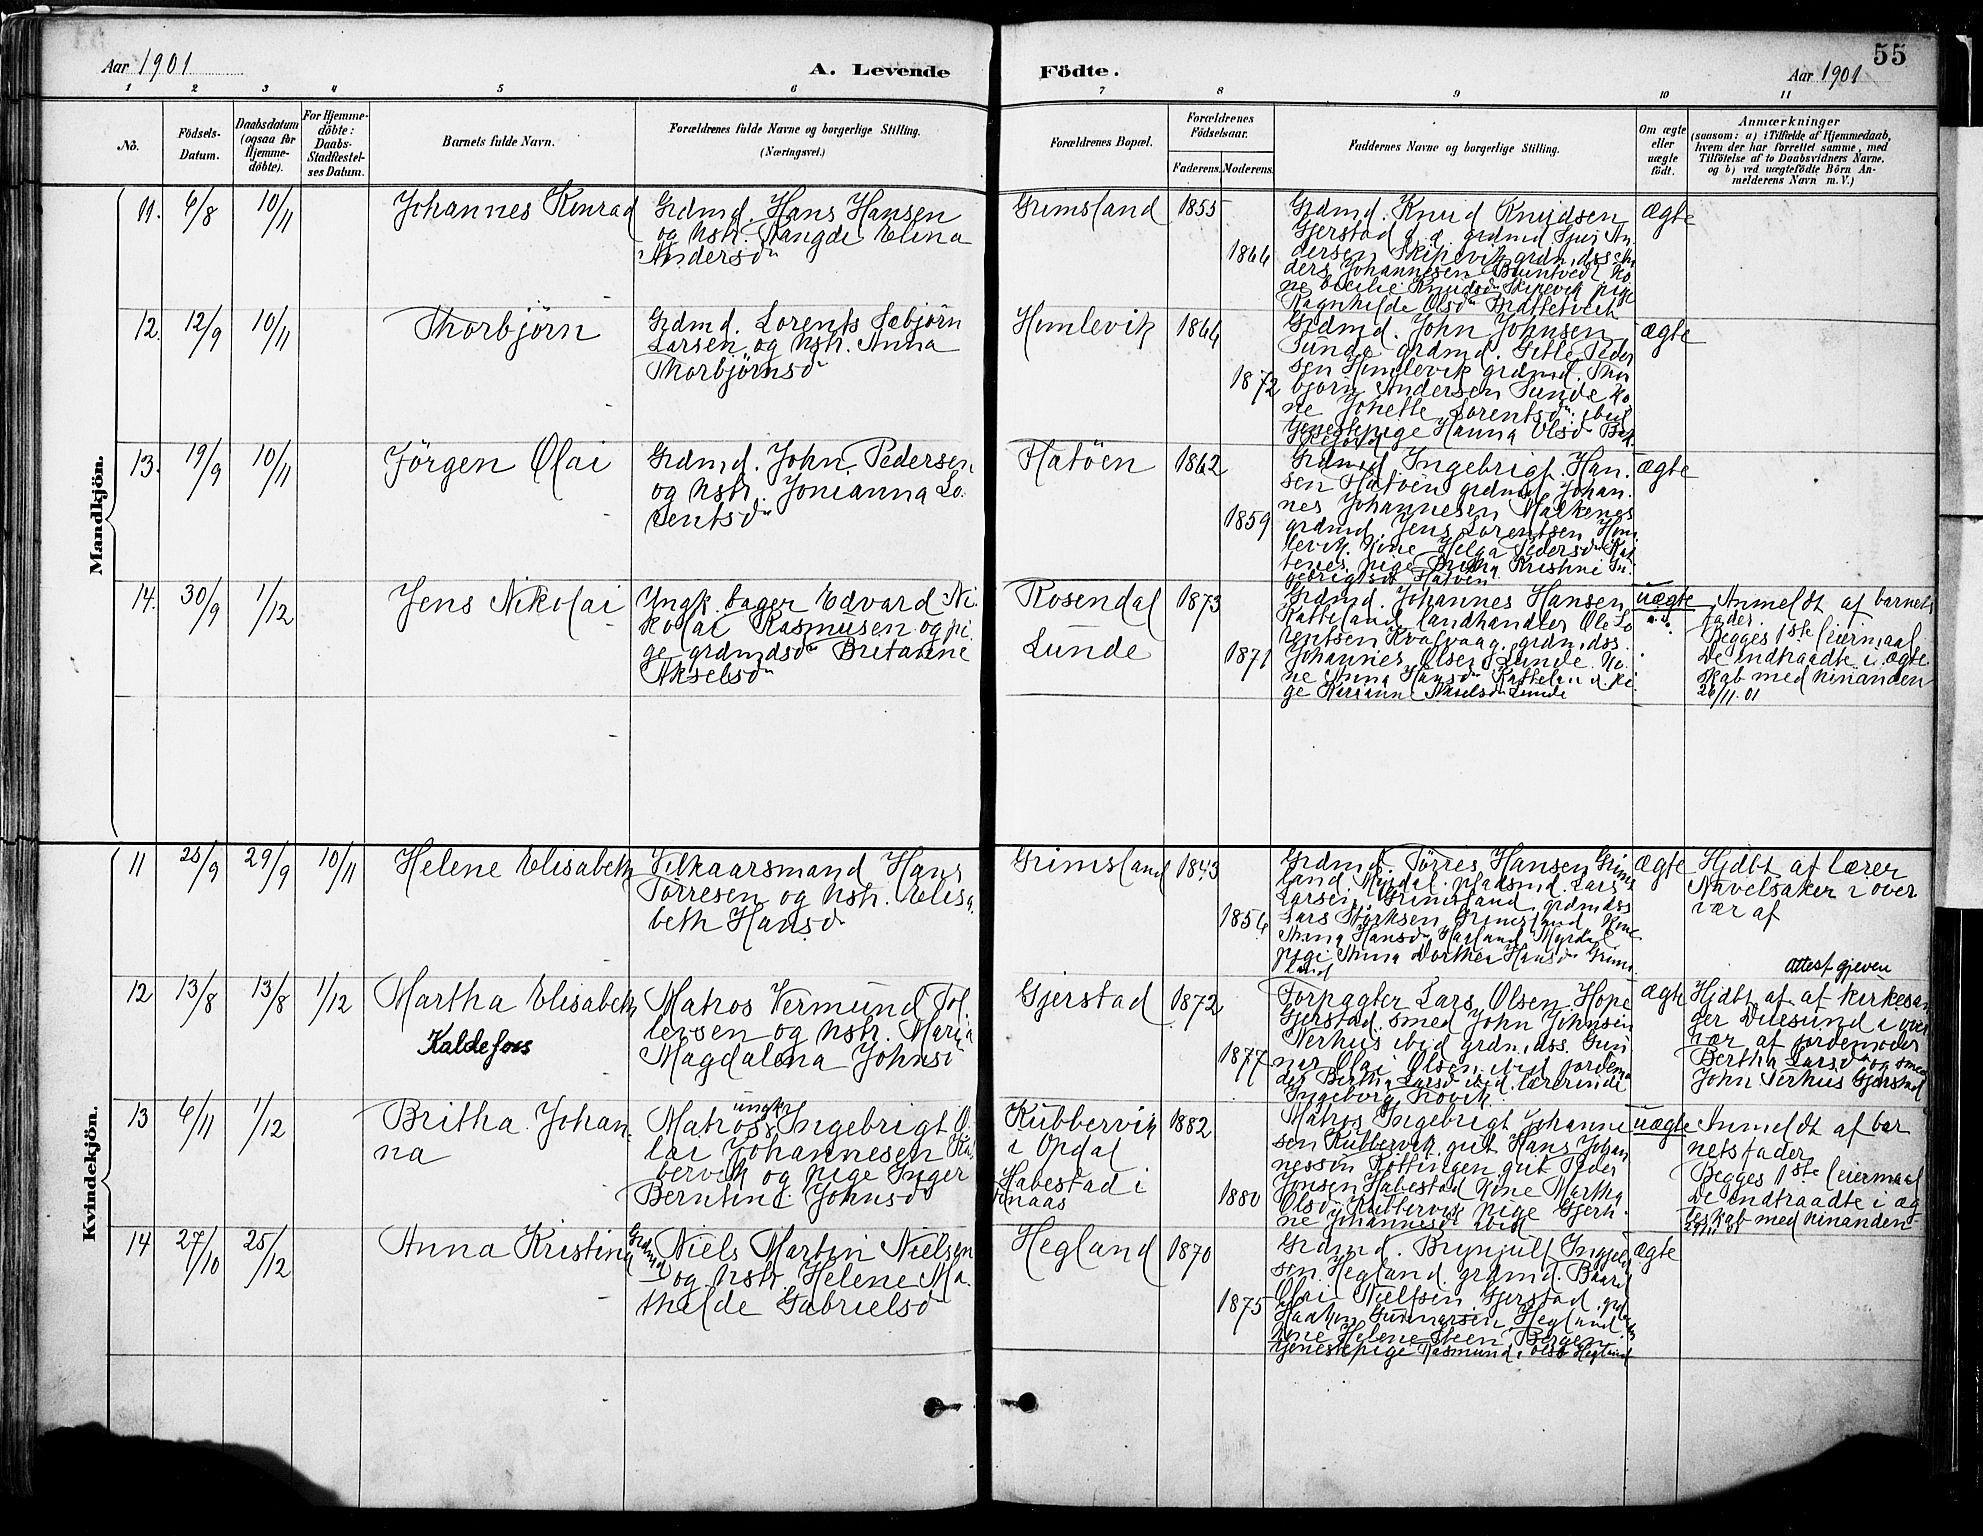 Aar 1901
A. Levende
Födte.
Aar 1901
55
1 2 3 4 5 6 7 8 9 10 11
No.
Födsels-
Datum.
Daabsdatum
(ogsaa for
Hjemme-
döbte).
For Hjemme-
döbte:
Daabs-
Stadfæstel-
ses Datum.
Barnets fulde Navn.
Forældrenes fulde Navne og borgerlige Stilling.
(Næringsvei.)
Forældrenes Bopæl.
Forældrenes
Födselsaar.
Faderens. Moderens.
Faddernes Navne og borgerlige Stilling.
Om ægte
eller
uægte
født.
Anmærkninger
(saasom: a) i Tilfælde af Hjemmedaab,
hvem der har forrettet samme, med
Tilföielse af to Daabsvidners Navne.
og b) ved uægtefödte Börn An-
melderens Navn m. V.)
Mandkjön.
11. 6/8 10/11
Johannes Konrad
Grdmd. Hans Hansen
og hstr. Rangdi Elina
Andersdr
Grimsland
1855
1864
Grdmd. Knud Knudsen
Gjerstad
ægte
12. 12/9 10/11
Thorbjörn
Grdmd. Lorents Sebjörn
Larsen og hstr. Anna
Thorbjörnsd
Humlevik
1864
1872
Grdmd. John Johnsen
Sunde grdmd. Gitle Peder
sen Humlevik grdmd. Thor
björn Andersen Sunde ko
ne Jonette Lorentsdr ibid
tjenestepige Hanna Olsdr
ægte
13. 19/9 10/11
Jörgen Olai
Grdmd. John Pedersen
og hstr. Jonianna Lo
rentsdr
Hatöen
1862
1859
Grdmd Ingebrigt Han
sen Hatöen grdmd Johan
nes Johannesen Malkenes
grdmd. Jens Lorentsen Hum
levik. Kone Helga Pedersdr
pige Kristine In
gebrigtsdr Hatöen
ægte
14. 30/9 1/12
Jens Nikolai
Ungk. bager Edvard Ni
kolai Rasmusen og pi
ge grdmdsdr Britanne
Akselsdr
Rosendal
Lunde
1873
1871
Grdmd. Johannes Hansen
Katteland landhandler Ole Lo
rentsen Kvalvaag grdmdss.
Johannes Olsen Lunde. Ko
ne Anna Hansdr Katteland pi
ge Karianne Akselsdr Lunde
uægte
Anmeldt af barnets
fader.
Begges 1ste leiermaal
De indtraadte i ægte
skab med hinanden
/11 01
Kvindekjön.
11 25/9 29/9 10/11
Helene Elisabeth
Vilkaarsmand Hans
Törresen og hstr. Elisa
beth Hansdr
Grimsland
1843
1854
Grdmd. Törres Hansen Grims
land. Myrdal. pladsmd. Lars
Larsen Grimsland grdmdss
Lars Störksen Grimsland kone
Anna Hansdr Haaland Myrdal
pige Anna Dorthea Hansdr Grims
land
ægte
Hjdbt af lærer
Navelsaker i over
vær af
12 13/8 13/8 1/12
Martha Elisabeth
Kaldefoss
Matros Vermund Tol
levsen og hstr. Maria
Magdalena Johnsd
Gjerstad
1872
1877
Forpagter Lars Olsen Hope
Gjerstad. smed John Johnsen
Nerhus ibid grdmdss. Gun
nar Olai Olsen ibid jordemo
der Bertha Larsd ibid. lærerinde
Ingeborg
ægte
attest gjeven
Hjdbt af af kirkesan
ger Duesund i over
vær af jordemoder
Bertha Larsdr og smed
John Nerhus Gjerstad
13 6/11 1/12
Britha Johan-
na
ungk
Matros Ingebrigt O
lai Johannesen Kub
bervik og pige Inger
Berntine Johnsd
Kubbervik
i Opdal
Habestad i
naas
1882
1880
Matros Ingebrigt Johanne
sen Kubbervik gut Hans Johan
nessen Röttingen gut Peder
Jonsen Habestad kone Martha
Olsdr Kubbervik pige Gjert
ne Johannesd ibid
uægte
Anmeldt af bar
nets fader
Begges 1ste leiermaal
De indtraadte i æg
teskab med hinanden
14 27/10 25/12
Anna Kristina
Grdmd
Niels Martin Nielsen
og hstr Helene Ma
thilde Gabrielsd
Hegland
1870
1875
Grdmd. Brynjulf Ingjeld
sen Hegland. grdmd. Baard
Olai Nielsen Gjerstad.
Haakon Gunnarsen Hegland
kone Helene Steen Bergen
tjenestepige Rasmund. Olsd Hegland
ægte